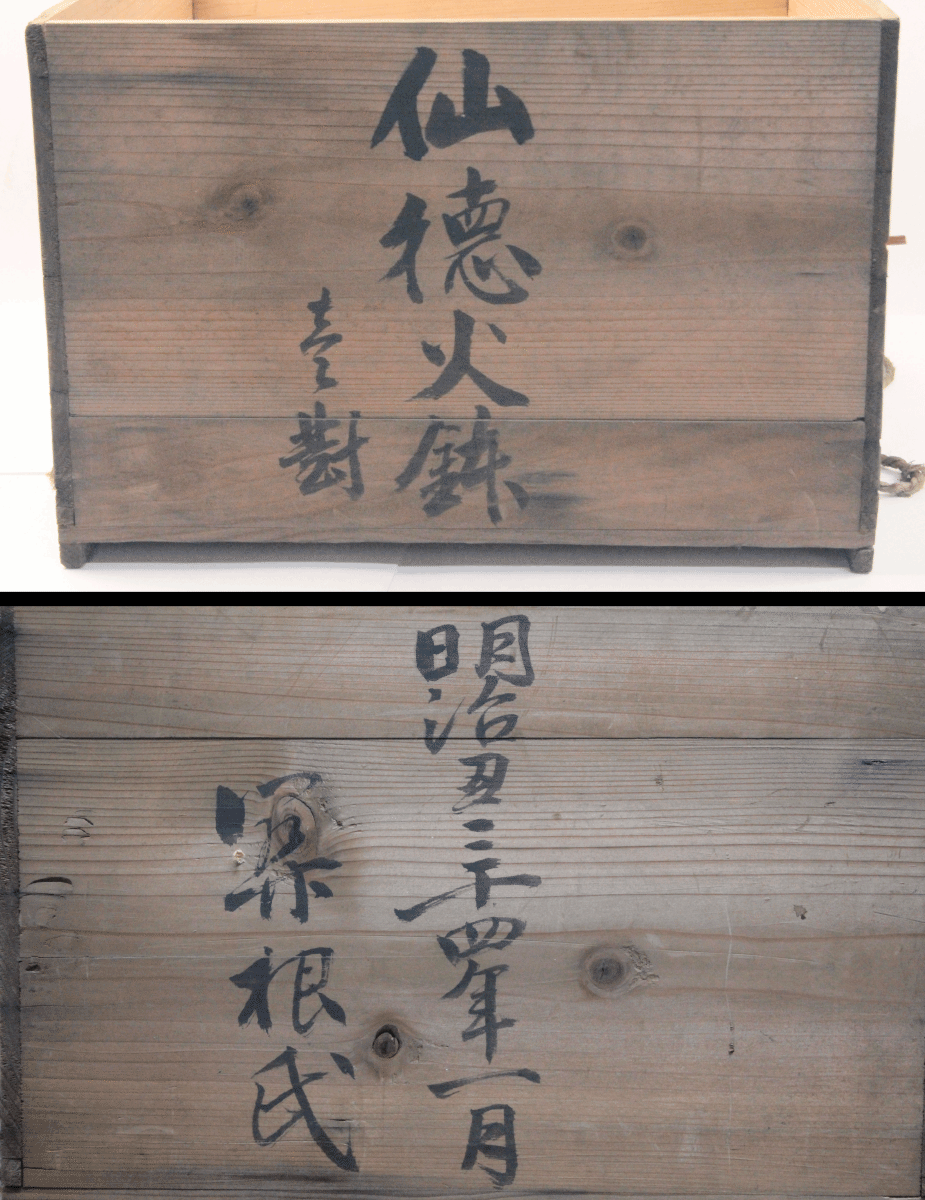 仙徳火鉢
壹對
明治丑三十四年一月
根氏